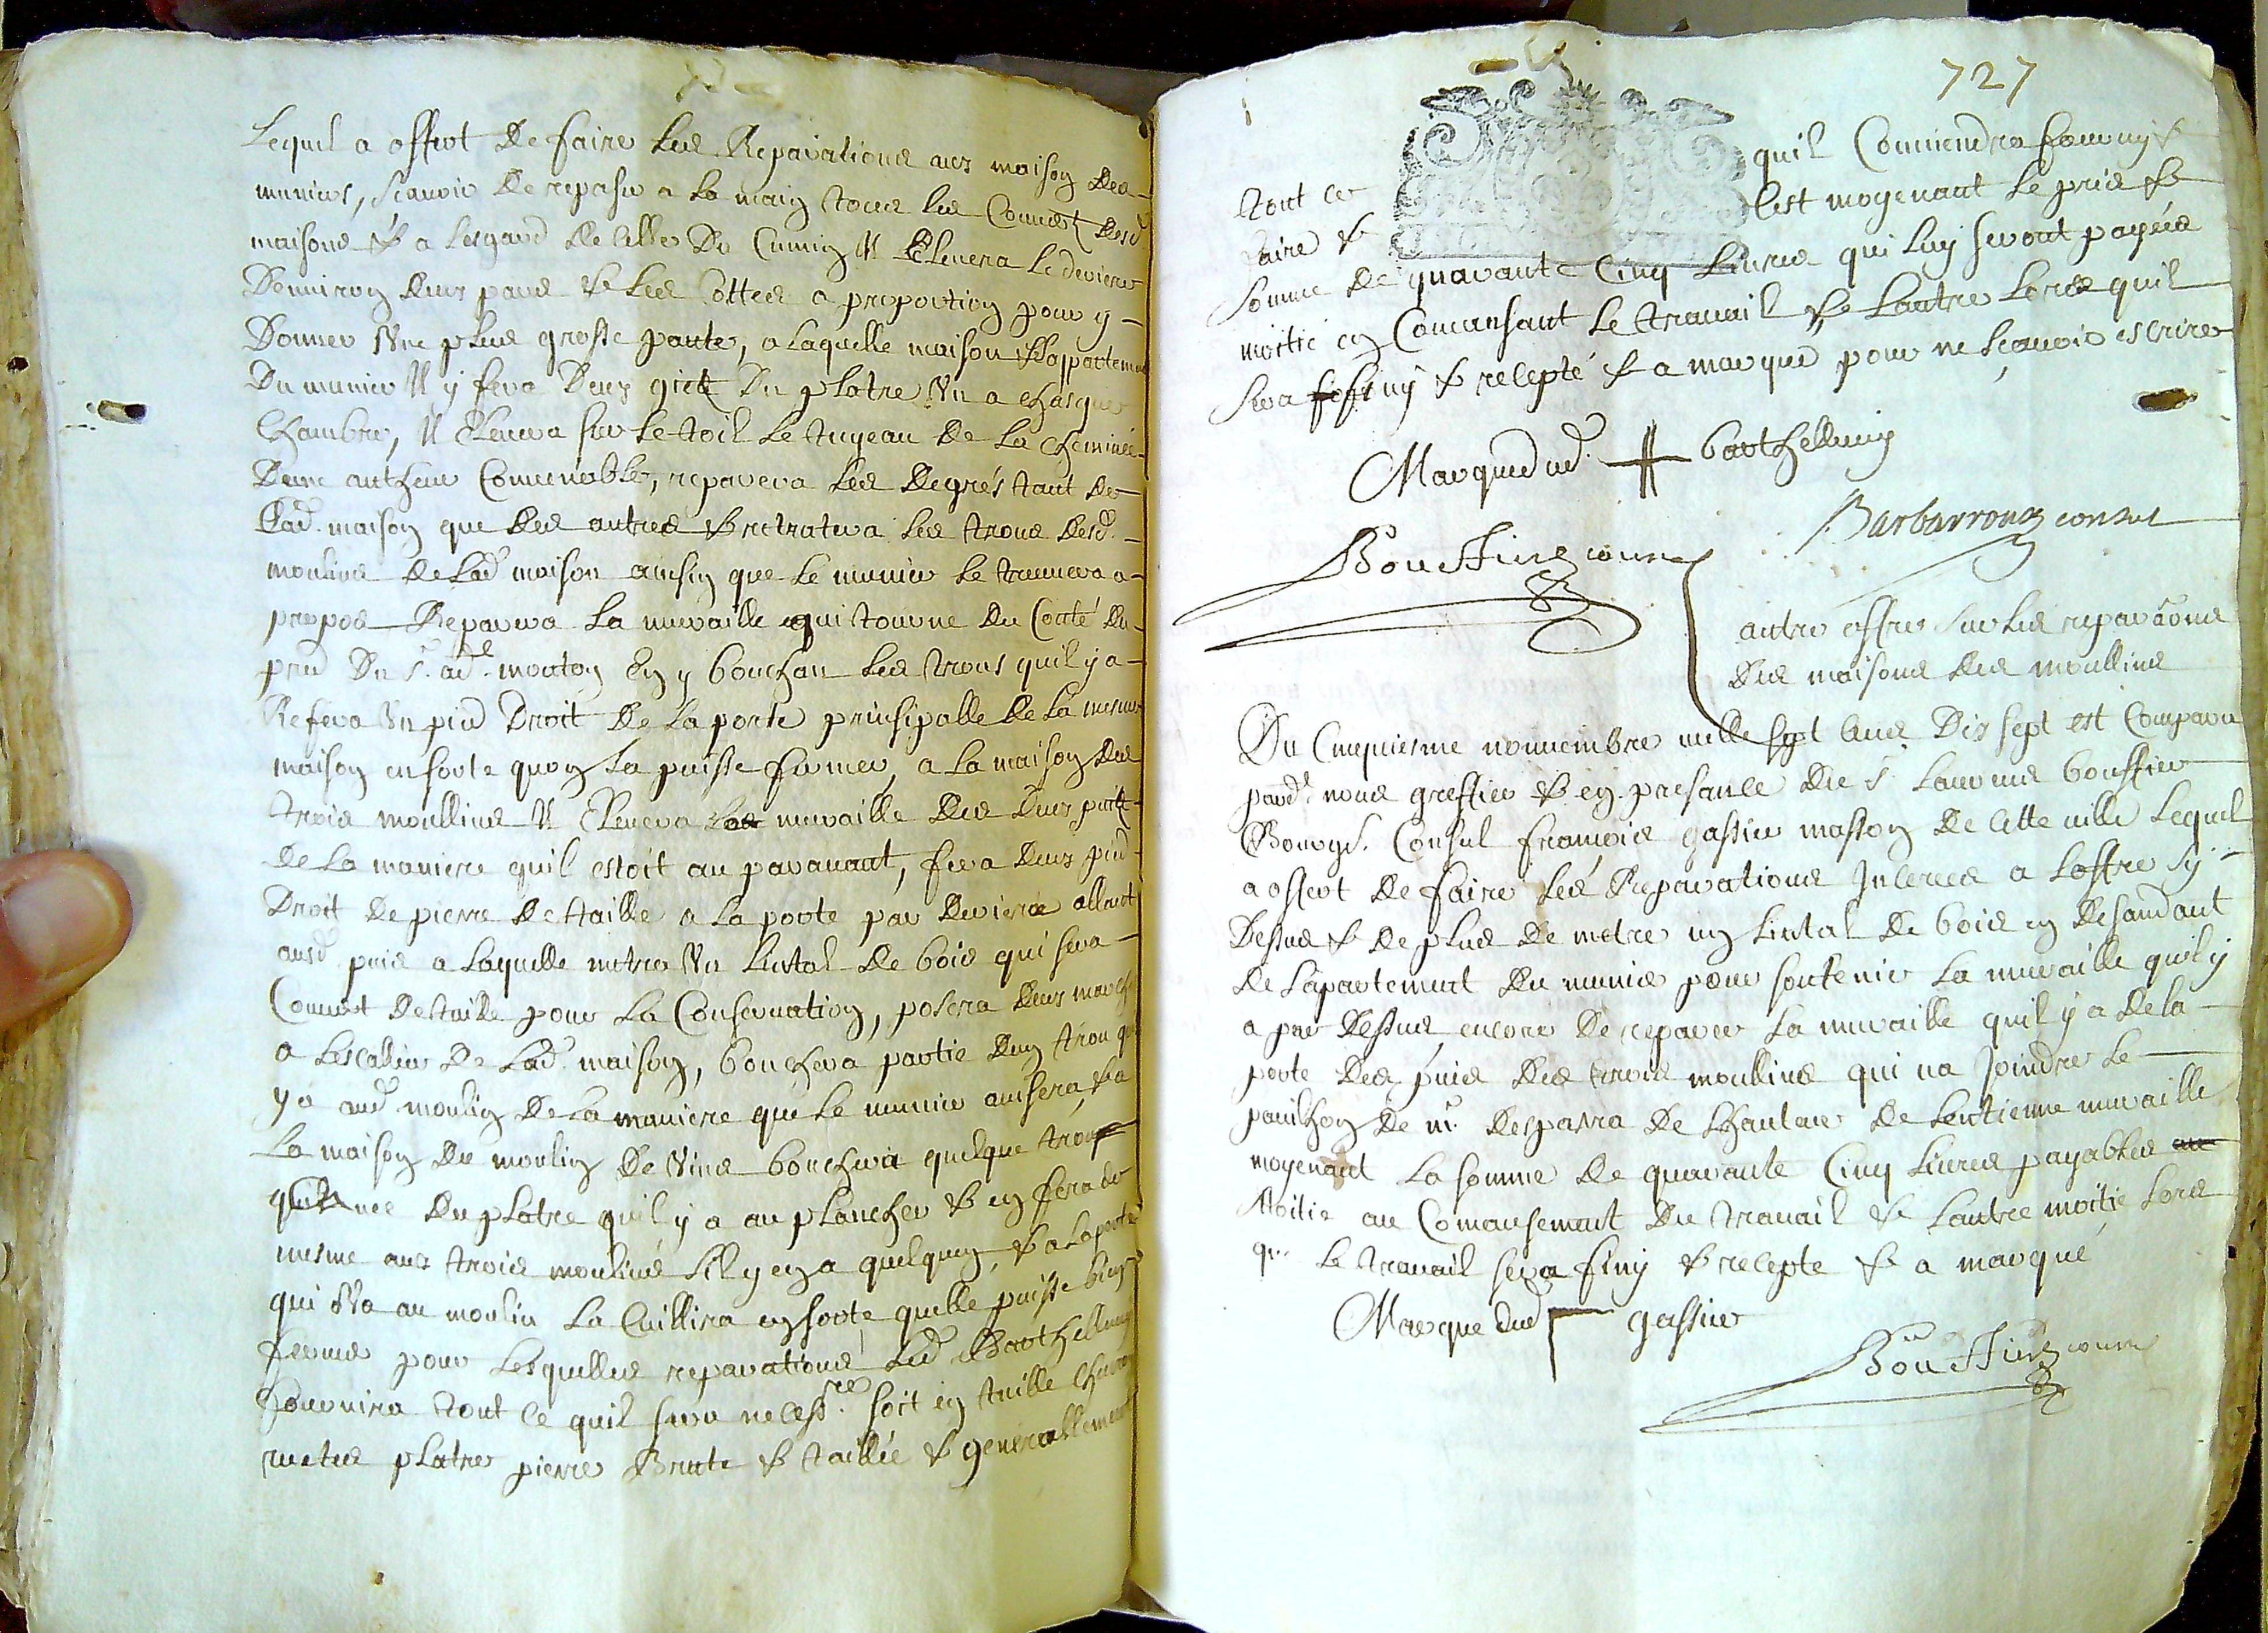 Lequel a offert de faire les Reparations aux maison des
muniers, scavoir de repasser a la main tous les Couverts desd
maisons & a lesgard de celles du Cumin Il Elevera le deriere
Denviron deux pans & les cottes a proportion pour y
Donner Une plus grosse pante, a laquelle maison & apartemen
Du munier Il y fera Deux giets Du platre Un a chasque
Chambre, Il Elevera sur le toit le tuyeau De la cheminée
Dune autheur Convenable, reparera les Degrés tant de
Lad. maison que des autres & retratera les trous desd.
moulins de lad maison ainsin que le munier le trouvera a
propos Reparera la muraille qui tourne du Cotté du
pred Du sr. adt. mouton En y bouchan les trous quil y a
Refera Un pied Droit De la porte prinsipalle de la mesme
maison en sorte quon la puisse fermer, a la maison des
trois moullins Il Elevera la muraille des deux puits
De la maniere quil estoit au paravant, fera deux pied
Droit de pierre de taille a la porte par deriere allant
ausd. puis a laquelle metra Un lintal de bois qui sera
Couvert de taille pour la Conservation, posera deux marches
a lescallier de lad. maison, bouchera partie dun trou qui
y a aud moulin De la maniere que le munier avisera, & a
la maison du moulin de Vins bouchera quelque trou
du platre quil y a au plancher & en fera de
mesme aux trois moulins sil y en a quelquun, & a la porte
qui Va au moulin la Cuillira en sorte quelle puisse bien
fermer pour lesquelles reparations led Barthellemy
fournira tout ce quil sera necessre. soit en taille chaux
platre pierre Brute & taillée & generallement
727
tout ce quil Conviendra fourny &
faire & Cest moyenant le pris &
somme De quarante Cinq Livres qui luy seront payées
moitié en Comansant le travail & lautre lors quil
sera finy & recepté & a marqué pour ne scavoir escrire
Marque dud. Barthellemy
Bouffier consul
Barbarroux consul
autre offre sur les reparaons
des maisons des moullins
Du Cinquiesme novembre mille sept cens Dix sept est Comparu
pardt. nous greffier & en presance du sr. Laurens bouffier
Bourgs. Consul francois gassier masson De cette ville Lequel
a offert De faire les Reparations Incerees a loffre sy
Dessus & de plus de metre un lintal de bois en desandant
de lapartement du munier pour soutenir la muraille quil y
a par dessus, encore de reparer la muraille quil y a de la
porte des puis des trois moullins qui va joindre le
pavilhon de mr. desparra de lhautaur de lentienne muraille
moyenant la somme de quarante Cinq livres payables
Moitie au Comansement du travail & lautre moitie lors
que le travail sera finy & recepte & a marqué
Marque dud gassier
Bouffier consul